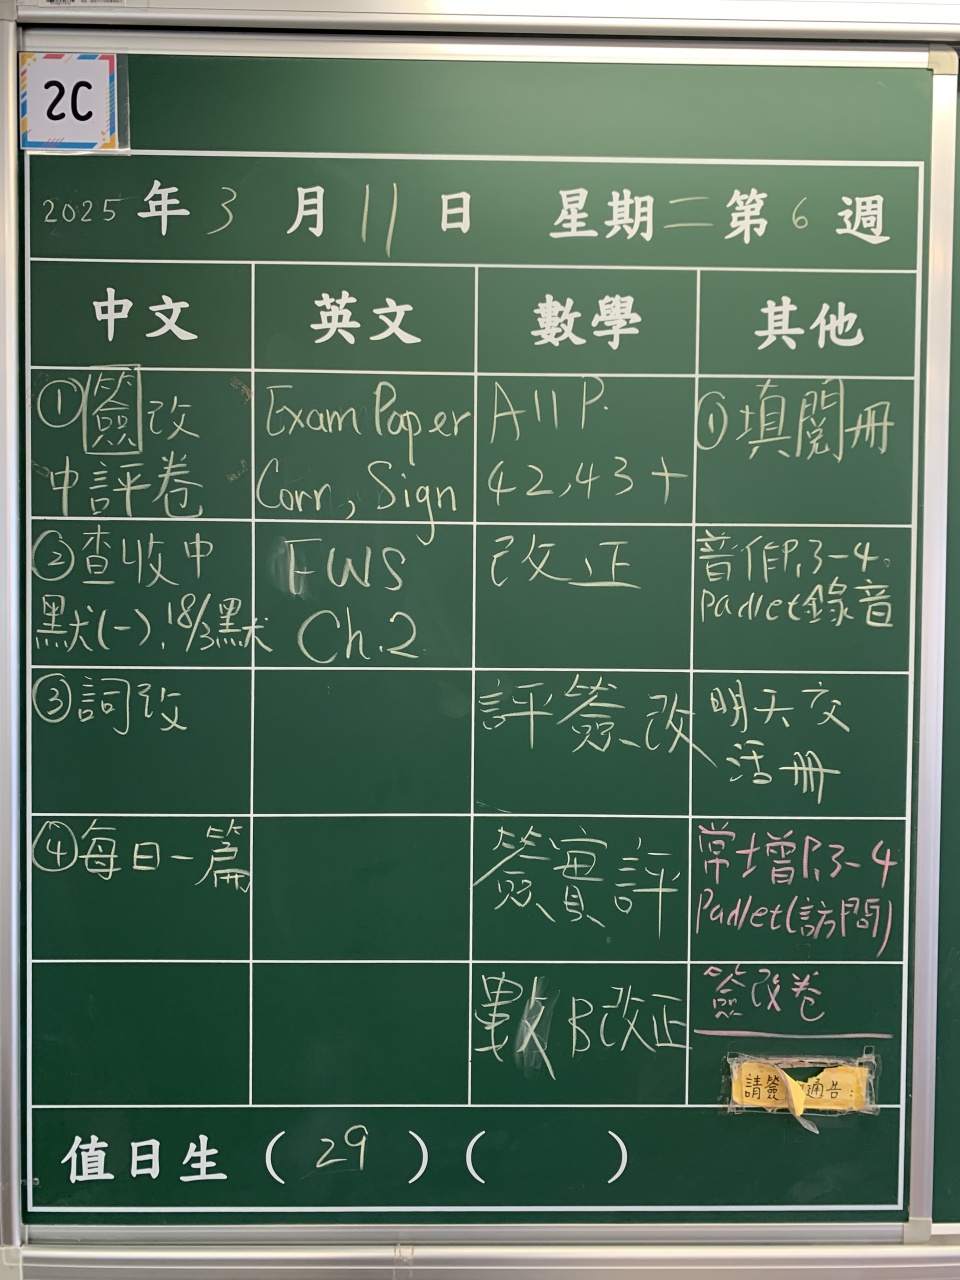 2C
2025 年 3 月 11 日 星期二 第 6 週
中文 英文 數學 其他
①簽改
中評卷
Exam Paper
Corr, Sign
All P.
42,43十
①填閱冊
②查收中
默(一), 18/3默
EWS
Ch.2
改正
音作P.3-4
Padlet錄音
③詞改
評簽、改
明天交
活冊
④每日一篇
簽實評
常增P.3-4
Padlet(訪問)
數B改正
簽改卷
請簽 通告:
值日生 ( 29 ) ( )